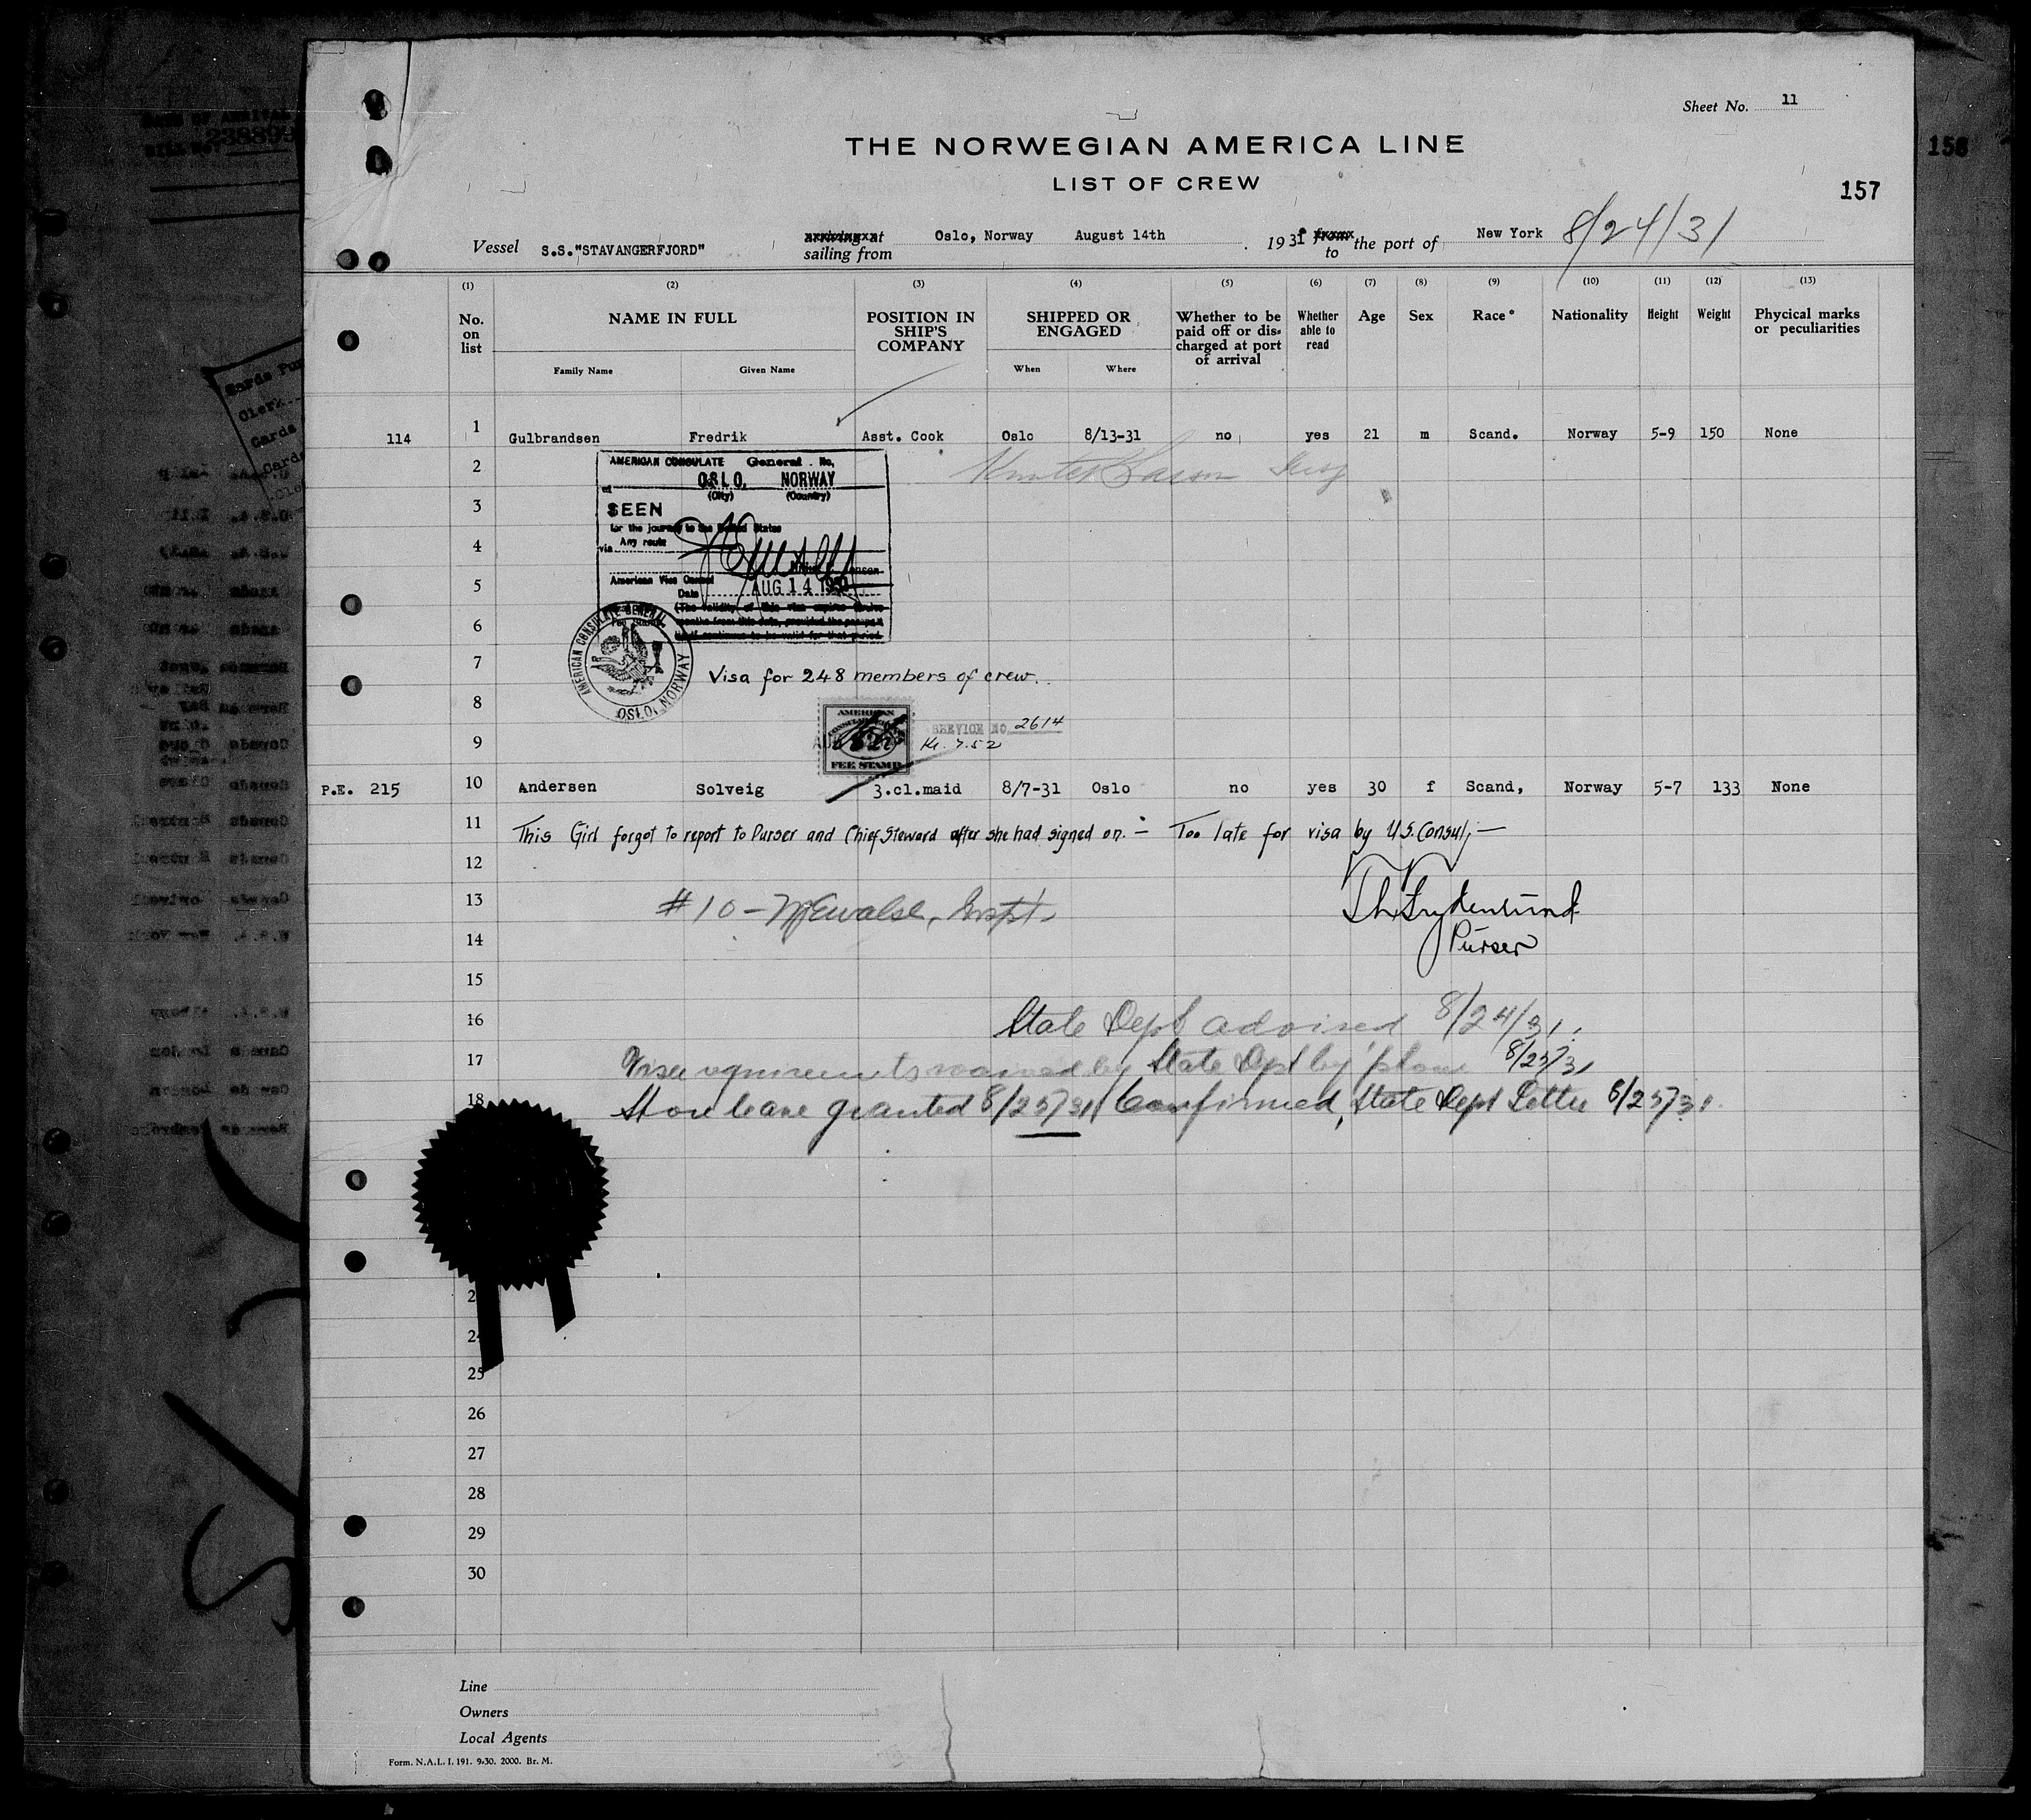 Sheet No. 11
THE NORWEGIAN AMERICA LINE
LIST OF CREW
157
158
Vessel S.S."STAVANGERFJORD" arriving at sailing from Oslo, Norway August 14th 1931 from to the port of New York 8/24/31
(1) (2) (3) (4) (5) (6) (7) (8) (9) (10) (11) (12) (13)
No. on list NAME IN FULL POSITION IN SHIP'S COMPANY SHIPPED OR ENGAGED Whether to be paid off or discharged at port of arrival Whether able to read Age Sex Race* Nationality Height Weight Physical marks or peculiarities
Family Name Given Name When Where
114 1 Gulbrandsen Fredrik Asst. Cook Oslo 8/13-31 no yes 21 m Scand. Norway 5-9 150 None
2
AMERICAN CONSULATE General. No.
at OSLO, NORWAY
(City) (Country)
3
SEEN
for the journey to the United States
4
via Any route
5
American Vice Consul
Date AUG 14 1931
(The validity of this visa expires twelve
6
months from this date, provided the passport
continues to be valid for that period.
AMERICAN CONSULATE GENERAL
OSLO, NORWAY
7 Visa for 248 members of crew.
8
AMERICAN
FEE STAMP
SERVICE NO. 2614
9 Kr. 7.52
P.E. 215 10 Andersen Solveig 3.cl.maid 8/7-31 Oslo no yes 30 f Scand, Norway 5-7 133 None
11 This Girl forgot to report to Purser and Chief Steward after she had signed on. — Too late for visa by U.S. Consul, —
12
13 #10 —
14 Purser
15
16 State Dept advised 8/24/31.
17 Visa requirements waived by State Dept by phone 8/25/31
18 Shore leave granted 8/25/31 Confirmed, State Dept Letter 8/25/31.
24
25
26
27
28
29
30
Line
Owners
Local Agents
Form. N.A.L. I. 191. 9-30. 2000. Br. M.